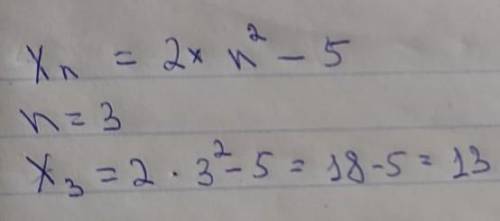 Xₙ = 2× n² − 5
n = 3
X₃ = 2 · 3² − 5 = 18 − 5 = 13